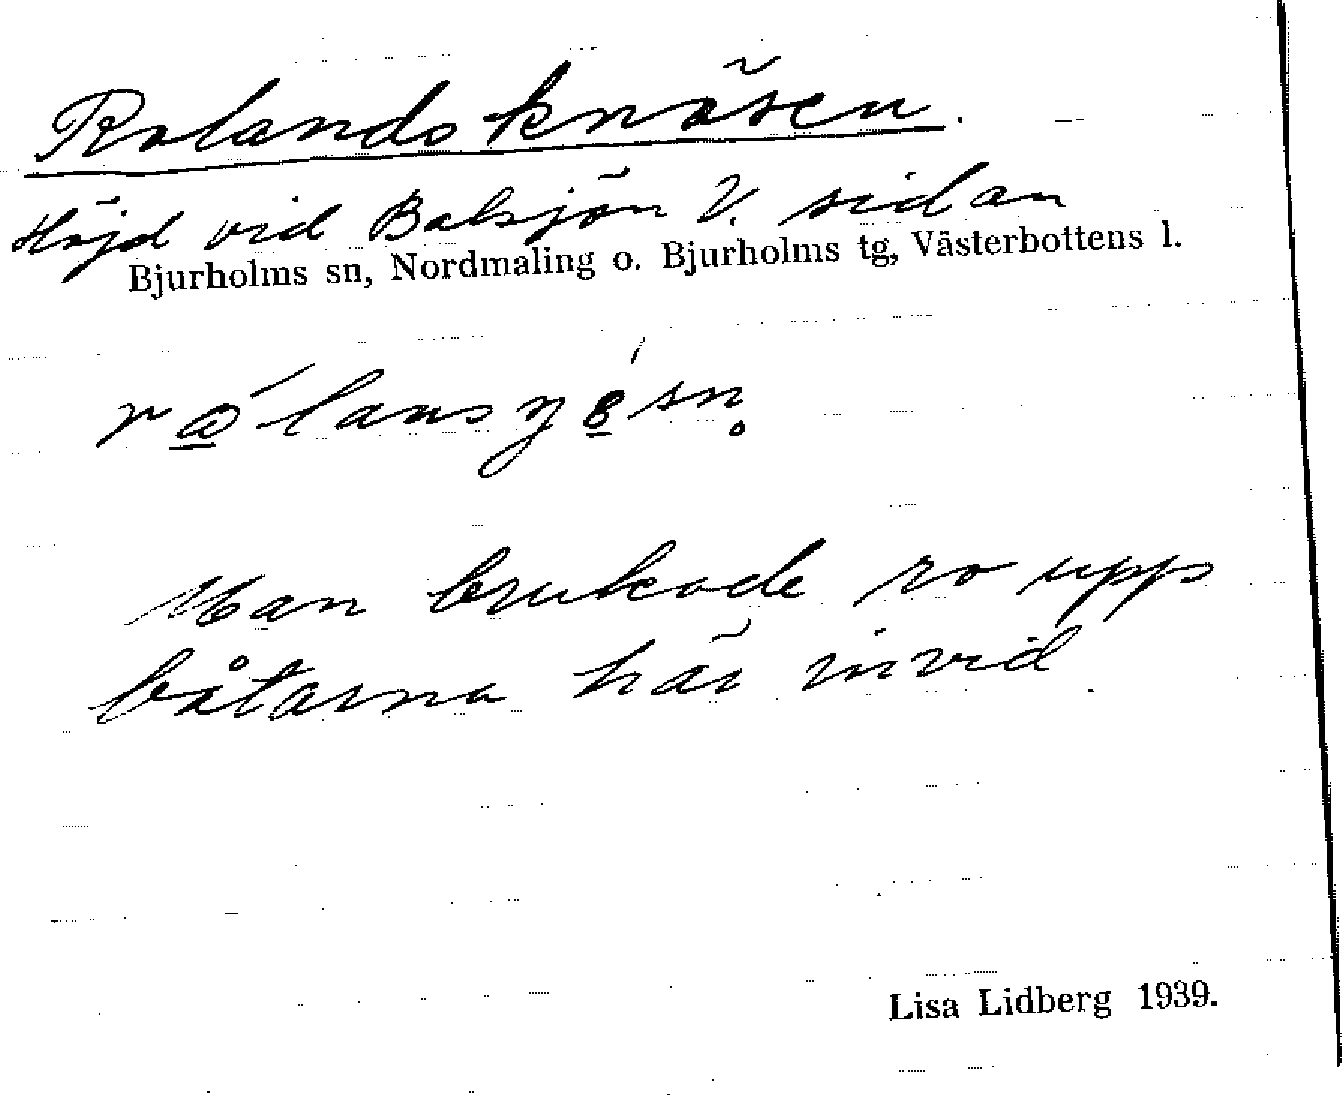 Rolandsknösen.
Höjd vid Balsjön V. sidan
Bjurholms sn, Nordmaling o. Bjurholms tg, Västerbottens l.
Man brukade ro upp
båtarna här invid
Lisa Lidberg 1939.